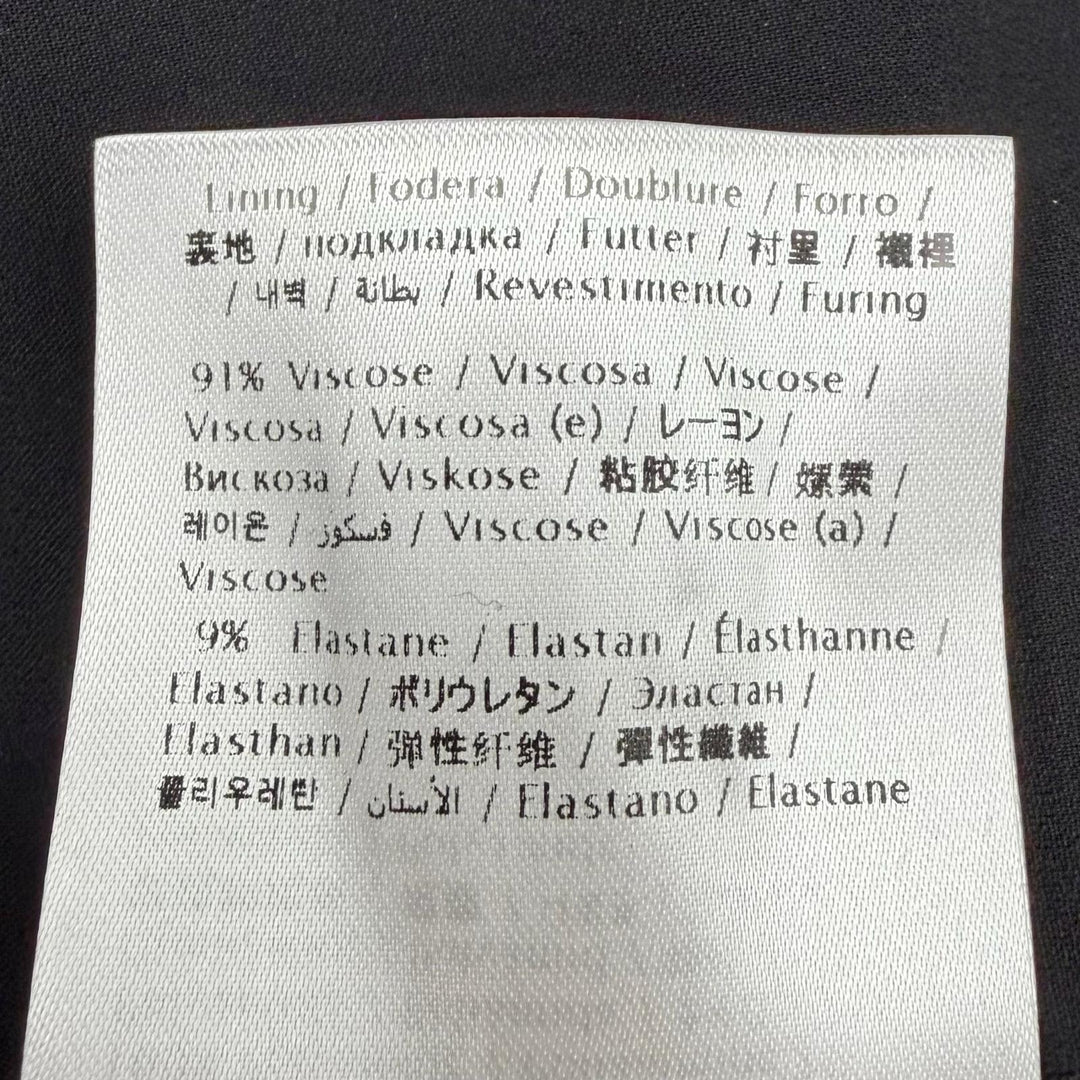 Lining / Fodera / Doublure / Forro /
裏地 / подкладка / Futter / 衬里 / 襯裡
/ 내벽 / بطانة / Revestimento / Furing
91% Viscose / Viscosa / Viscose /
Viscosa / Viscosa (e) / レーヨン /
Вискоза / Viskose / 粘胶纤维 / 嫘縈 /
레이온 / فسكوز / Viscose / Viscose (a) /
Viscose
9% Elastane / Elastan / Élasthanne /
Elastano / ポリウレタン / Эластан /
Elasthan / 弹性纤维 / 彈性纖維 /
폴리우레탄 / الأستان / Elastano / Elastane